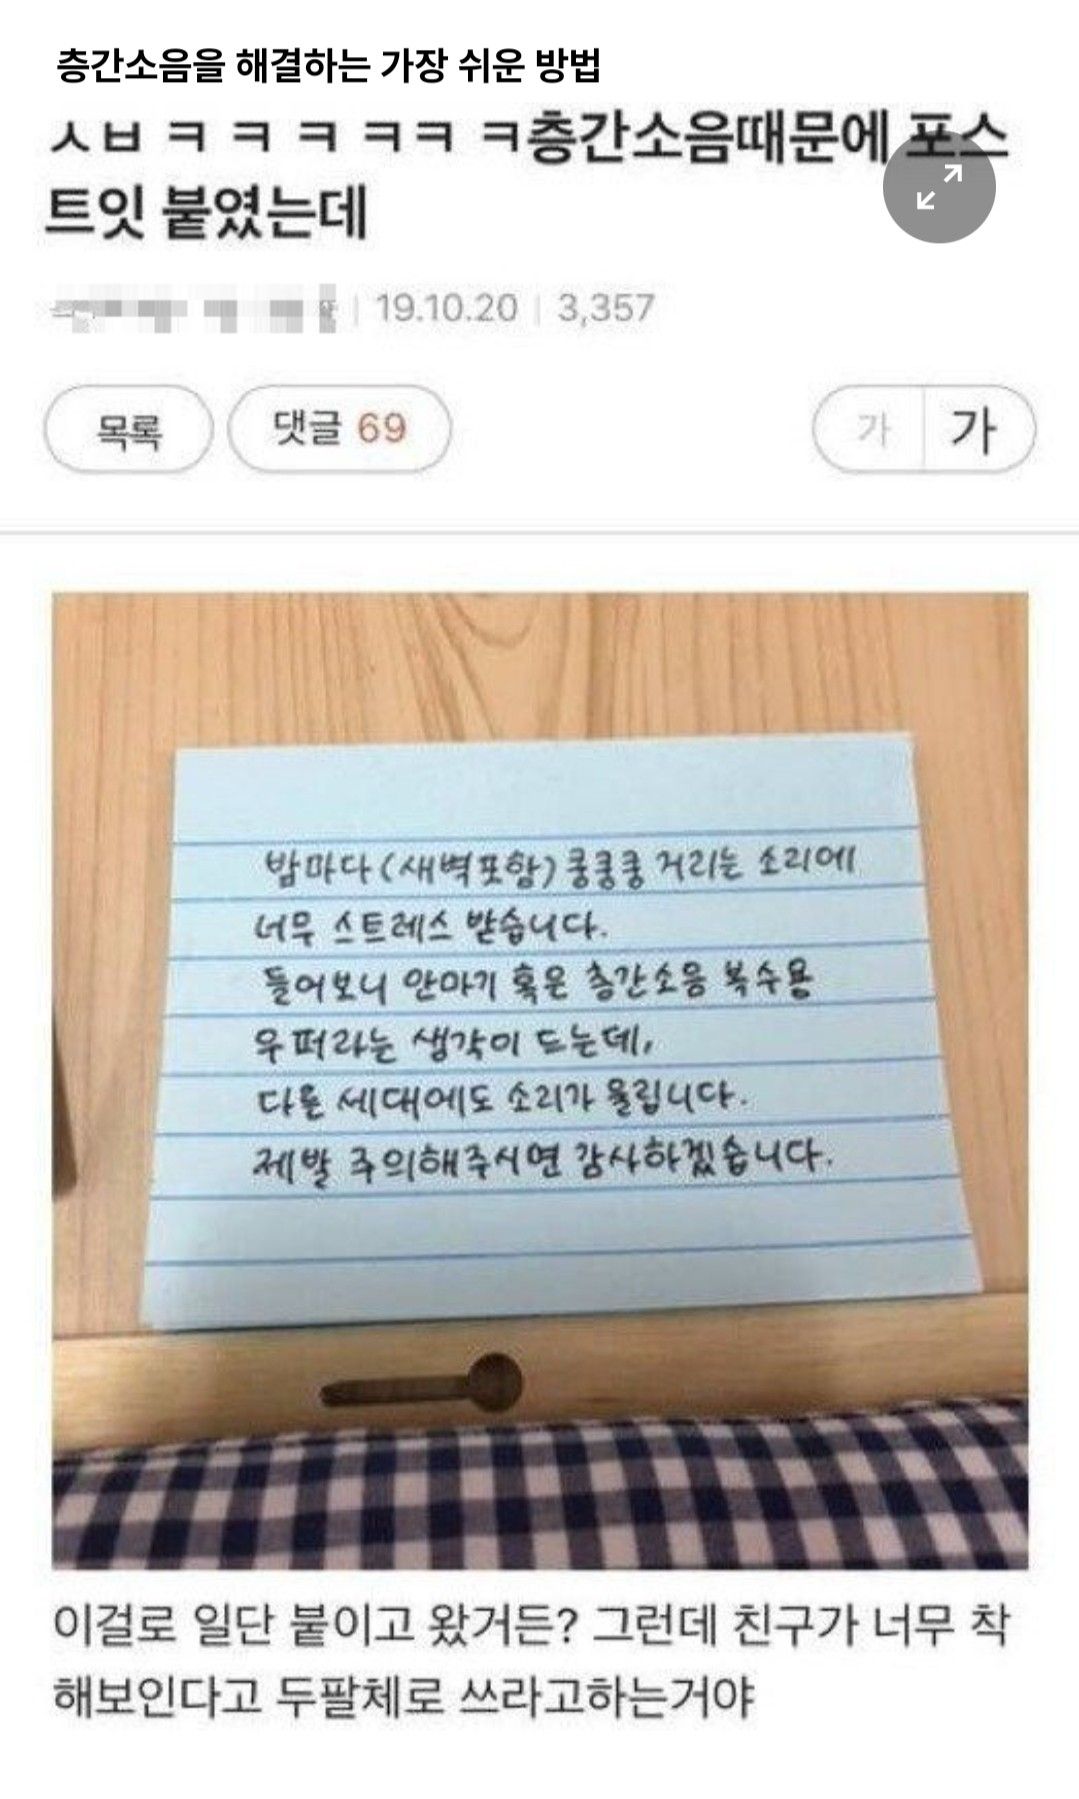 층간소음을 해결하는 가장 쉬운 방법
ㅅㅂ ㅋ ㅋ ㅋ ㅋㅋ ㅋ층간소음때문에 포스
트잇 붙였는데
19.10.20 | 3,357
목록 댓글 69 가 가
밤마다(새벽포함) 쿵쿵쿵 거리는 소리에
너무 스트레스 받습니다.
들어보니 안마기 혹은 층간소음 복수용
우퍼라는 생각이 드는데,
다른 세대에도 소리가 울립니다.
제발 주의해주시면 감사하겠습니다.
이걸로 일단 붙이고 왔거든? 그런데 친구가 너무 착
해보인다고 두팔체로 쓰라고하는거야